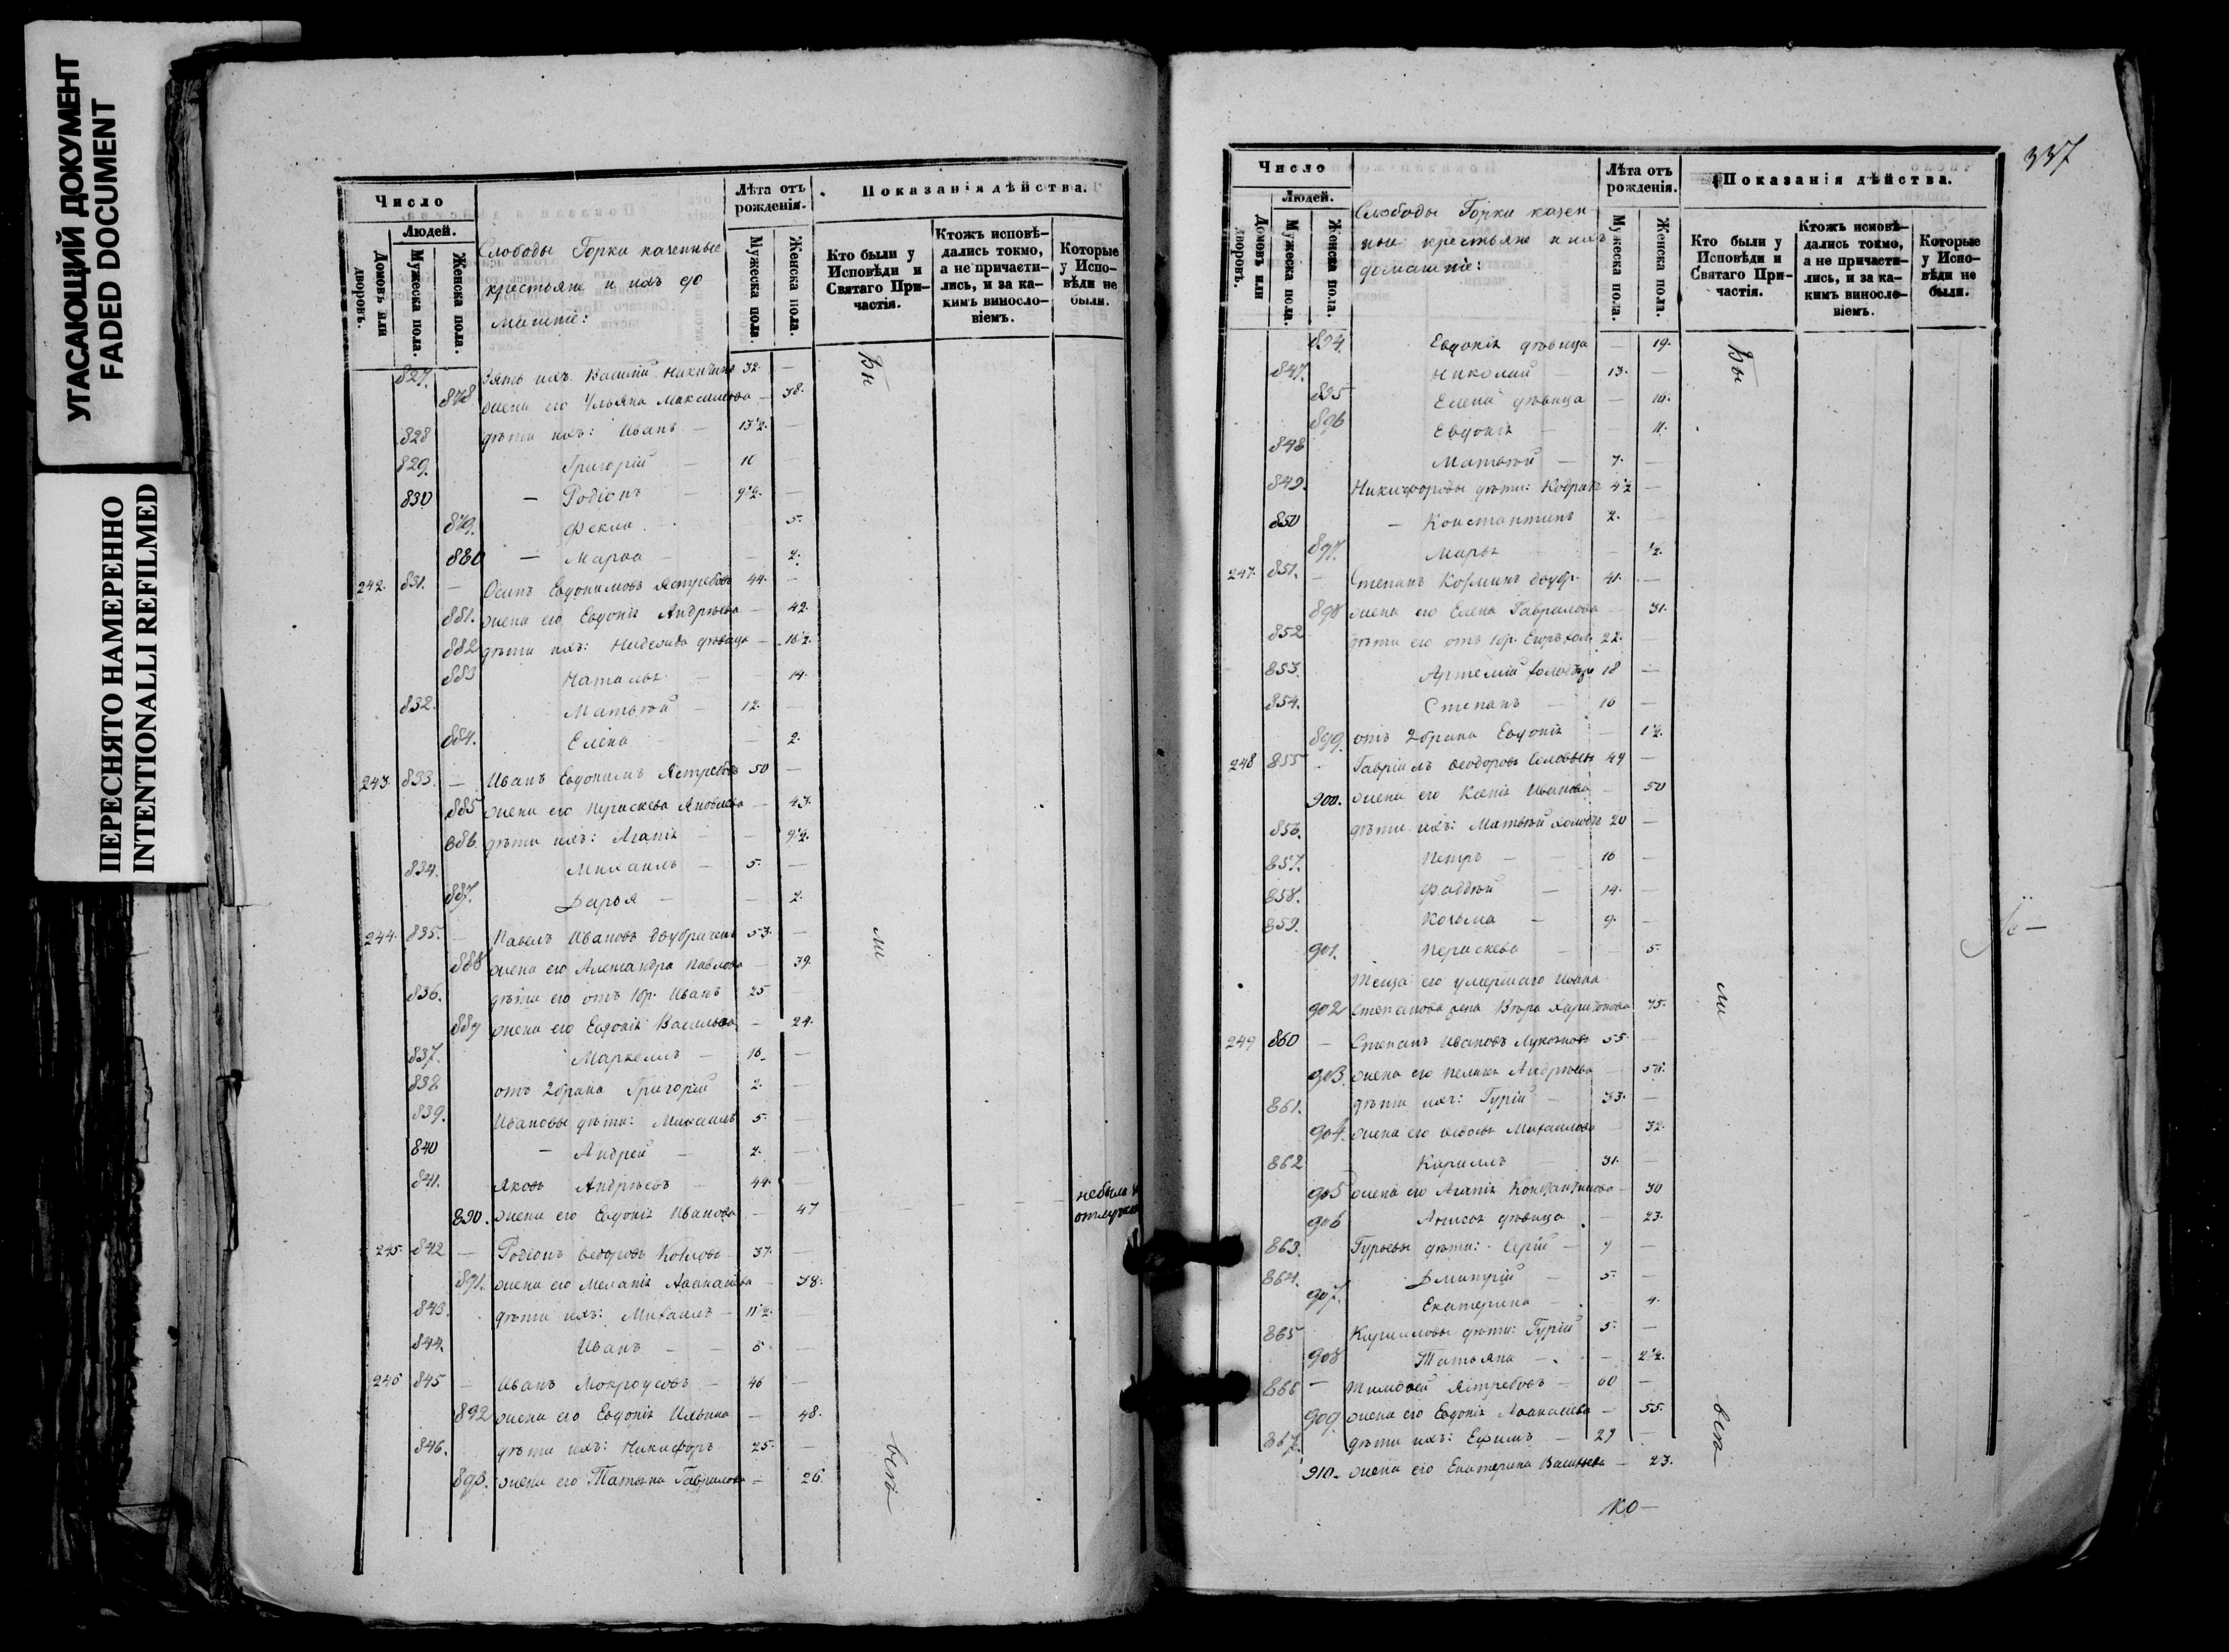 УГАСАЮЩИЙ ДОКУМЕНТ
FADED DOCUMENT
ПЕРЕСНЯТО НАМЕРЕННО
INTENTIONALLI REFILMED
Число
Людей.
Домовъ или дворовъ.
Мужеска пола.
Женска пола.
Слободы Горки казенные
крестьяне и ихъ до
машніе:
Лѣта отъ рожденія.
Мужеска пола.
Женска пола.
Показанія дѣйства.
Кто были у Исповѣди и Святаго При-
частія.
Ктожъ исповѣ-
дались токмо,
а не причасти-
лись, и за ка-
кимъ винсло-
віемъ.
Которые
у Испо-
вѣди не
были.
827. Зять ихъ Василій Никитинъ 32. —
878. жена его Ульяна Максимова — 38.
828 дѣти ихъ: Иванъ — 13½. —
829. Григорій — 10 —
830 — Родіонъ — 9½. —
879. Фекла 5.
880 — Марѳа — — 2.
242. 831. — Осипъ Евдокимовъ Ястребовъ 44. —
881. жена его Евдокія Андрѣева — 42.
882 дѣти ихъ: дѣвица — 16½.
883 Наталья — — 14.
832. Матвѣй — 12. —
884. Елена — — 2.
243. 833. — Иванъ Евдокимъ Ястребовъ 50 —
885 жена его Пераскева Яковлева — 43.
886. дѣти ихъ: Агапія — — 9½.
834. Михаилъ — 5. —
887. Дарья — — 2.
244. 835. — Павелъ Ивановъ двубраченъ 53. —
888 жена его Александра Павлова — 39.
836. дѣти его отъ 1бр. Иванъ 25 —
889 жена его Евдокія Васильева — 24.
837. Маркеллъ — 16. —
838 отъ 2брака Григорій 2. —
839. Ивановы дѣти: Михаилъ 5. —
840 — Андрей — 2. —
841. Яковъ Андрѣевъ — 44. —
890. жена его Евдокія Иванова — 47 — — — небыла
245. 842 — Родіонъ Ѳедоровъ Козловъ 37. —
891. жена его Меланія Аѳанасіева — 38.
843. дѣти ихъ: Михаилъ — 11½. —
844. Иванъ — — 5. —
246 845 — Иванъ Мокроусовъ — 46 —
892 жена его Евдокія Ильина — 48.
846. дѣти ихъ: Никифоръ 25. —
893. жена его Татьяна Гаврилова — 26.
Бы
ли
вси
337
Число
Людей.
Домовъ или дворовъ.
Мужеска пола.
Женска пола.
Слободы Горки казен
ные крестьяне и ихъ
домашніе:
Лѣта отъ рожденія.
Мужеска пола.
Женска пола.
Показанія дѣйства.
Кто были у Исповѣди и Святаго При-
частія.
Ктожъ исповѣ-
дались токмо,
а не причасти-
лись, и за ка-
кимъ винсло-
віемъ.
Которые
у Испо-
вѣди не
были.
894. Евдокія дѣвица — 19.
847. Николай — 13. —
895 Елена дѣвица —
896 Евдокія — — 11.
848 Матвѣй — 7. —
849. Никифоровы дѣти: Кодратъ 4½ —
850 — Константинъ 2. —
897. Марья — — ½.
247. 851. — Степанъ Козминъ двубр. 41. —
898 жена его Елена Гаврилова — 31.
852 дѣти его отъ 1бр. Егоръ хол. 22. —
853. Артемій 18 —
854. Степанъ — 16 —
899. отъ 2брака Евдокія — 1½.
248 855 Гавріилъ Ѳеодоровъ Соловьевъ 49 —
900. жена его Ксенія Иванова — 50
856. дѣти ихъ: Матвѣй холостъ 20 —
857. Петръ — — 16 —
858. Фаддѣй — 14. —
859. Козьма — 9. —
901. Пераскева — — 5.
Теща его умершаго Ивана
902 Степанова жена Вѣра Харитонова 75.
249 860 — Степанъ Ивановъ 55. —
903. жена его Пелагія Андрѣева —
861. дѣти ихъ: Гурій — 33. —
904. жена его Ѳедосья Михаилова — 32.
862 Кириллъ — 31. —
905 жена его Агапія Константинова — 30
906 Анисья дѣвица — 23.
863. Гурьевы дѣти: Сергій — 9 —
864. Дмитрій — 5. —
907. Екатерина — — 4.
865 Кирилловы дѣти: Гурій 5. —
908 Татьяна — — 2½.
866 — Тимоѳей Ястребовъ — 60 —
909 жена его Евдокія Аѳанасіева — 55.
867. дѣти ихъ: Ефимъ — 29 —
910. жена его Екатерина Васильева — 23.
Бы
ли
вси